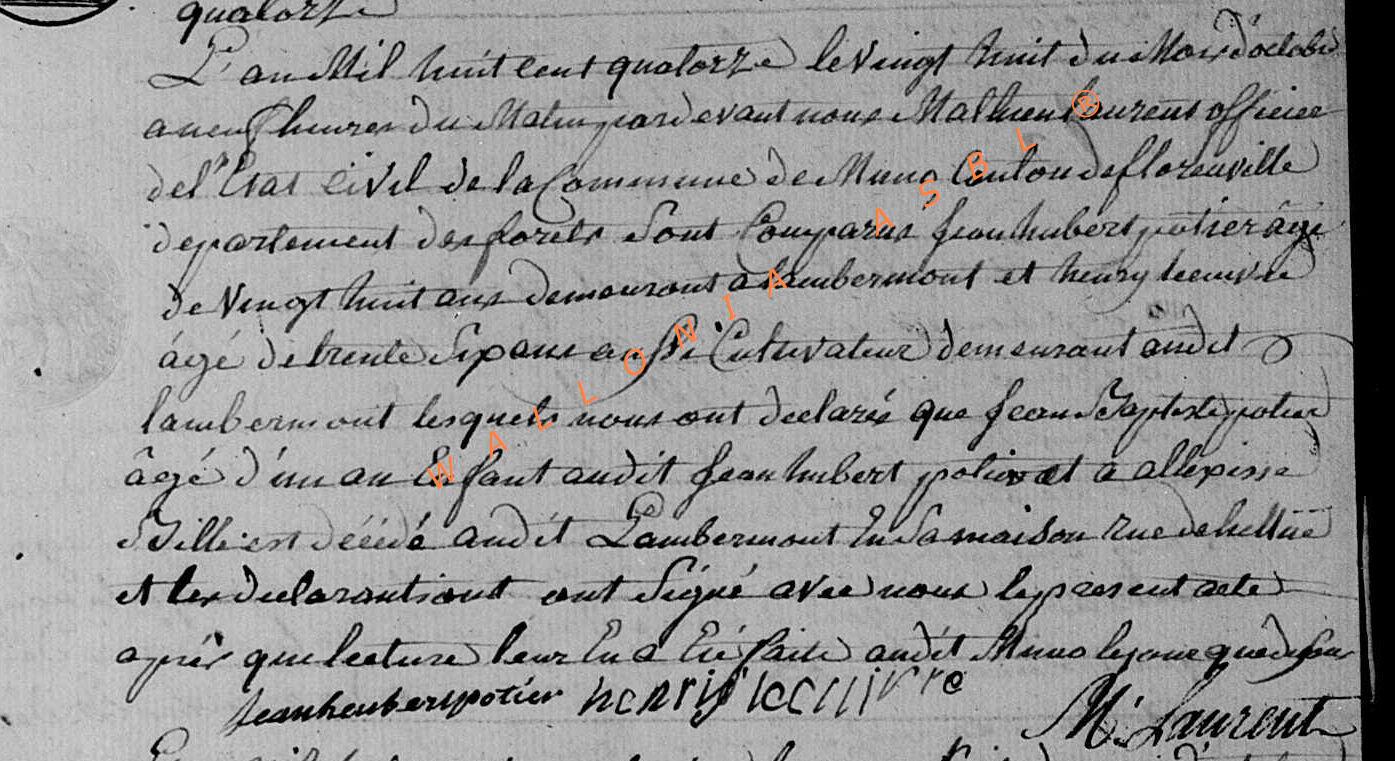 quatorze
L'an Mil huit cent quatorze le vingt huit du Mois d'octobre
a neuf heures du Matin pardevant nous Mathieu Laurent officier
de l'Etat civil de la Commune de Muno Canton de florenville
departement des forets sont Comparus jean hubert potier âgé
de vingt huit ans demeurant a Lambermont et henry lecuivre
âgé de trente six ans Cultivateur demeurant audit
lambermont lesquels nous ont declarés que jean Baptiste potier
âgé d'un an Enfant audit jean hubert potier et a
Bille est décédé audit Lambermont En sa maison rue
et les declarants ont signé avec nous le present acte
après que lecture leur En a Eté faite audit Muno le jour que dessus
jean heubert potier henris lecuivre
M. Laurent
WALLONIA ASBL ®